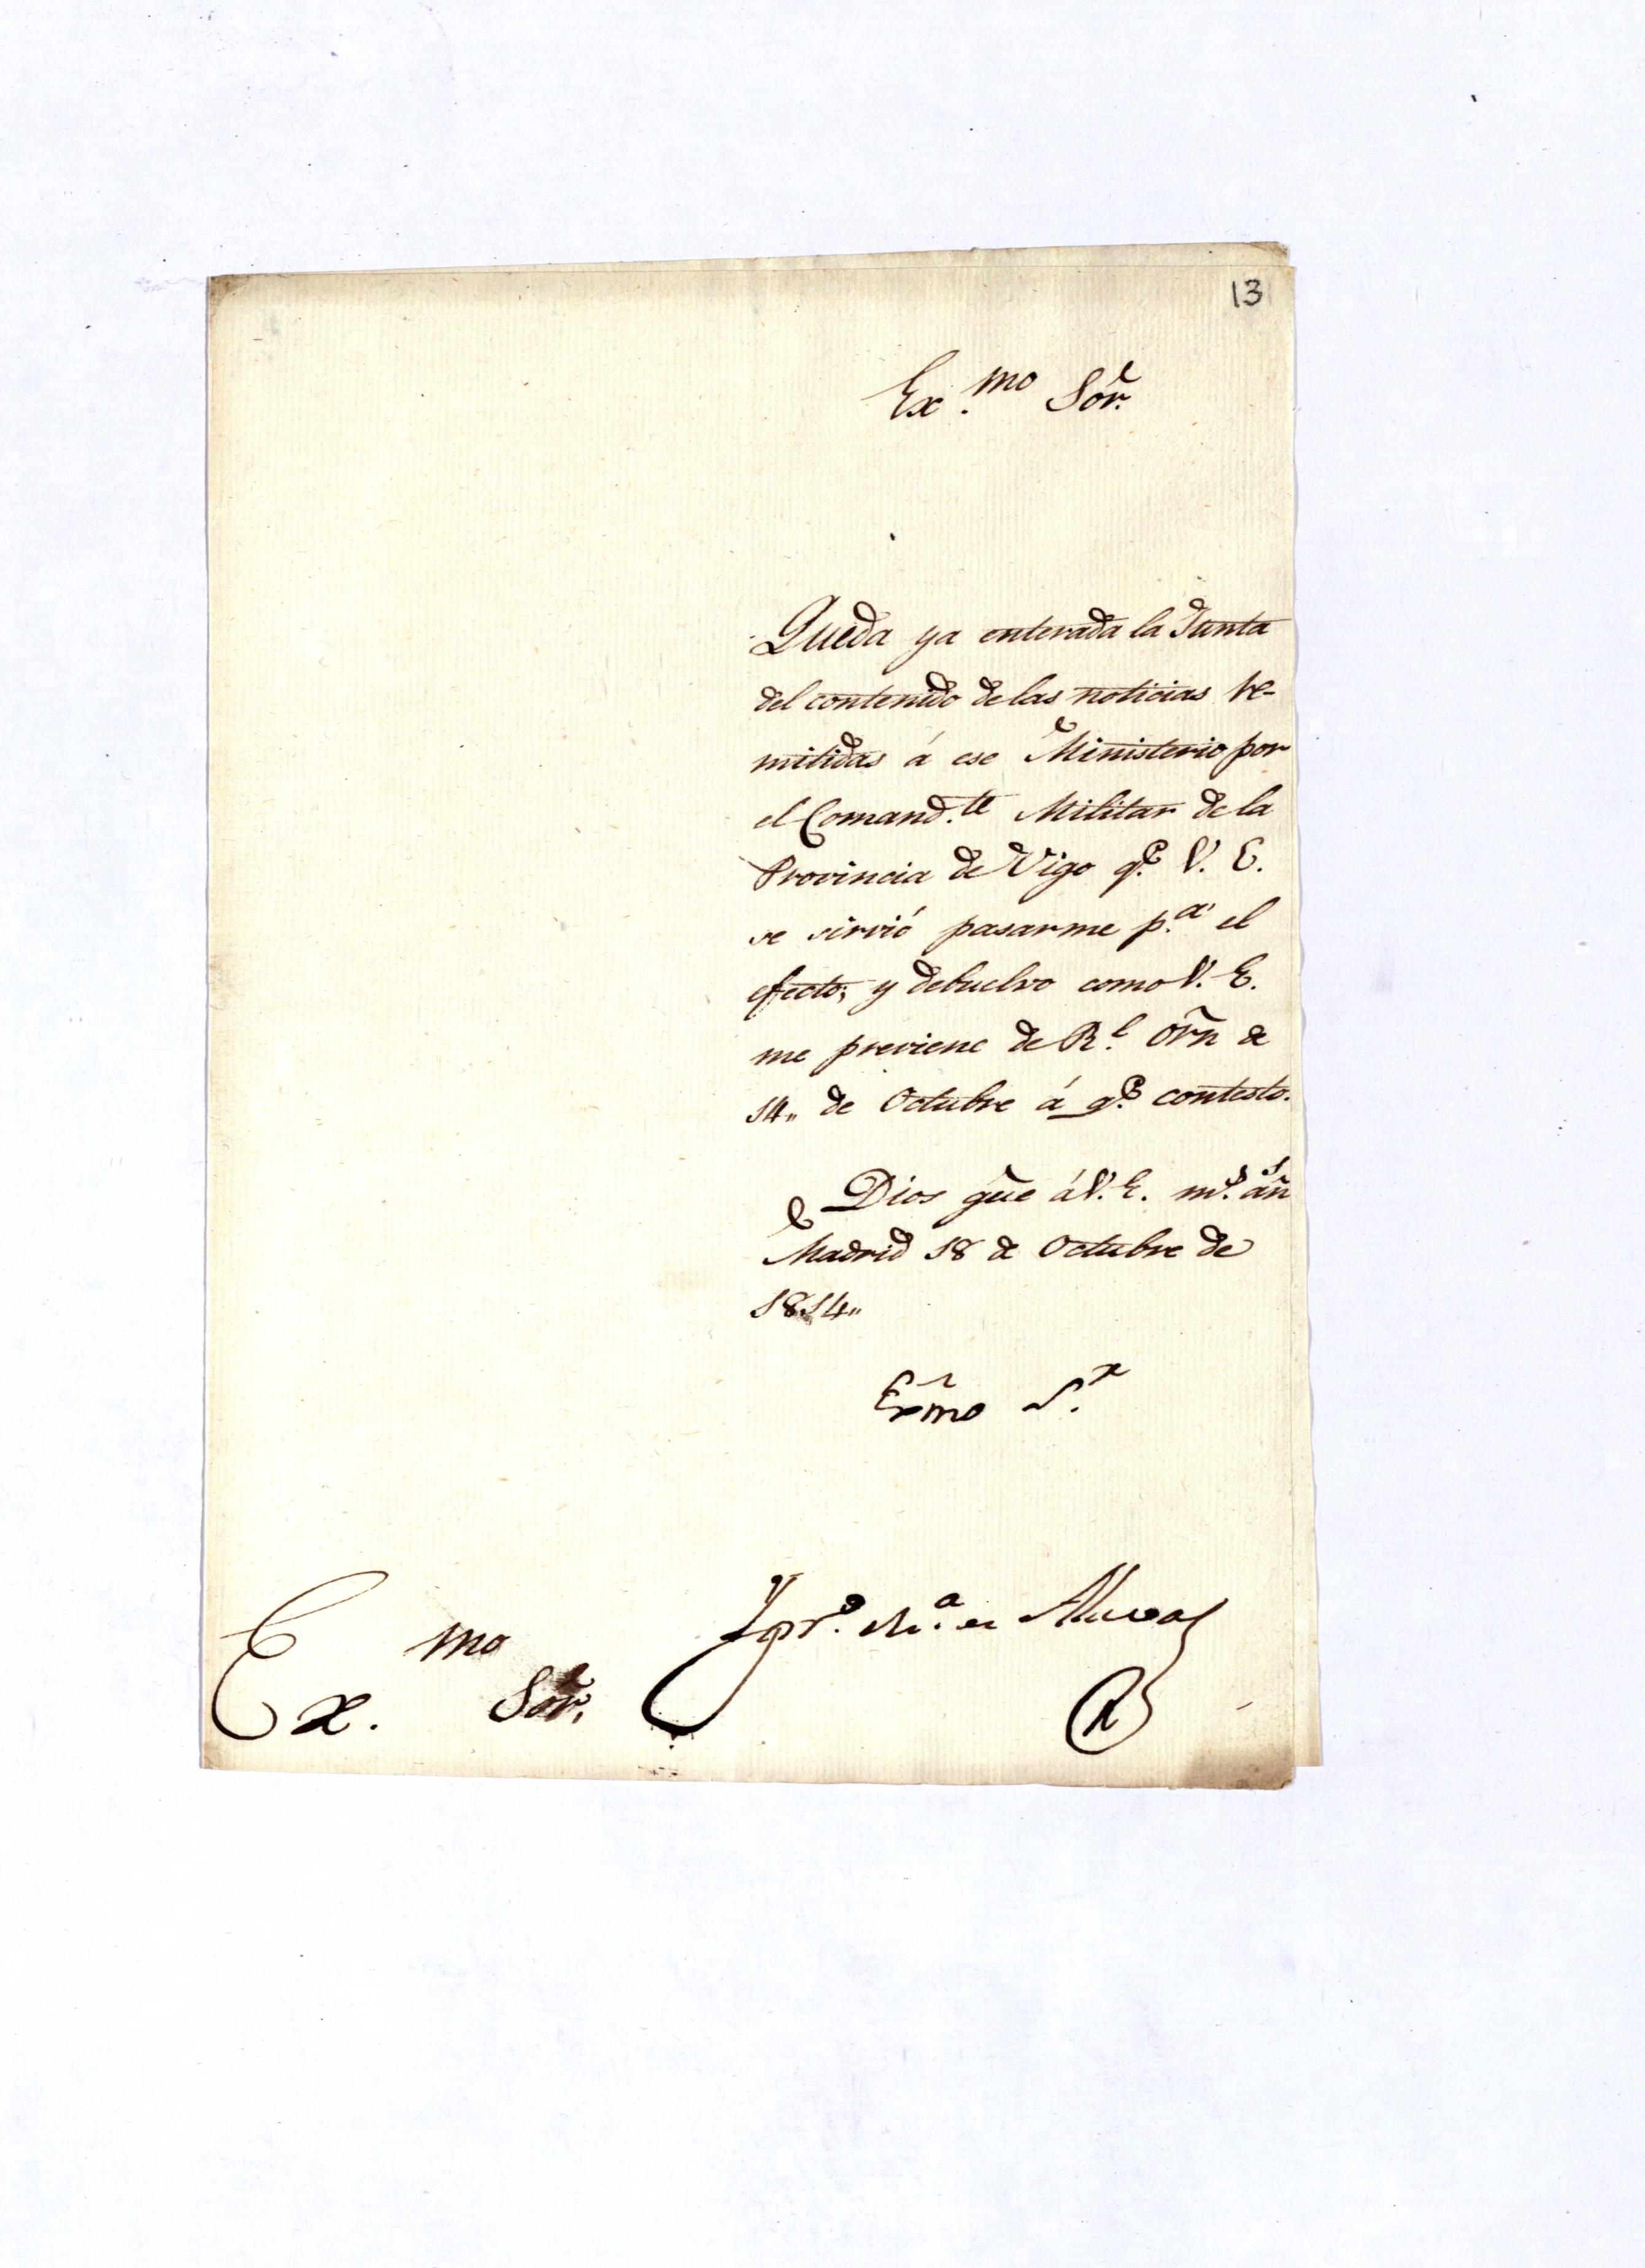 13
Ex.mo Sōr.
Queda ya enterada la Junta
del contenido de las noticias re-
mitidas á ese Ministerio por
el Comand.te Militar de la
Provincia de Vigo q.e V. E.
se sirvió pasarme p.a el
efecto; y debuelvo como V. E.
me previene de R.l Orn̄ de
14,, de Octubre á q.e contesto.
Dios gūe á V. E. m.s an̄s
Madrid 18 de Octubre de
1814,,
Exm̄o S.r
M.a de Alava
Ex.mo Sōr.